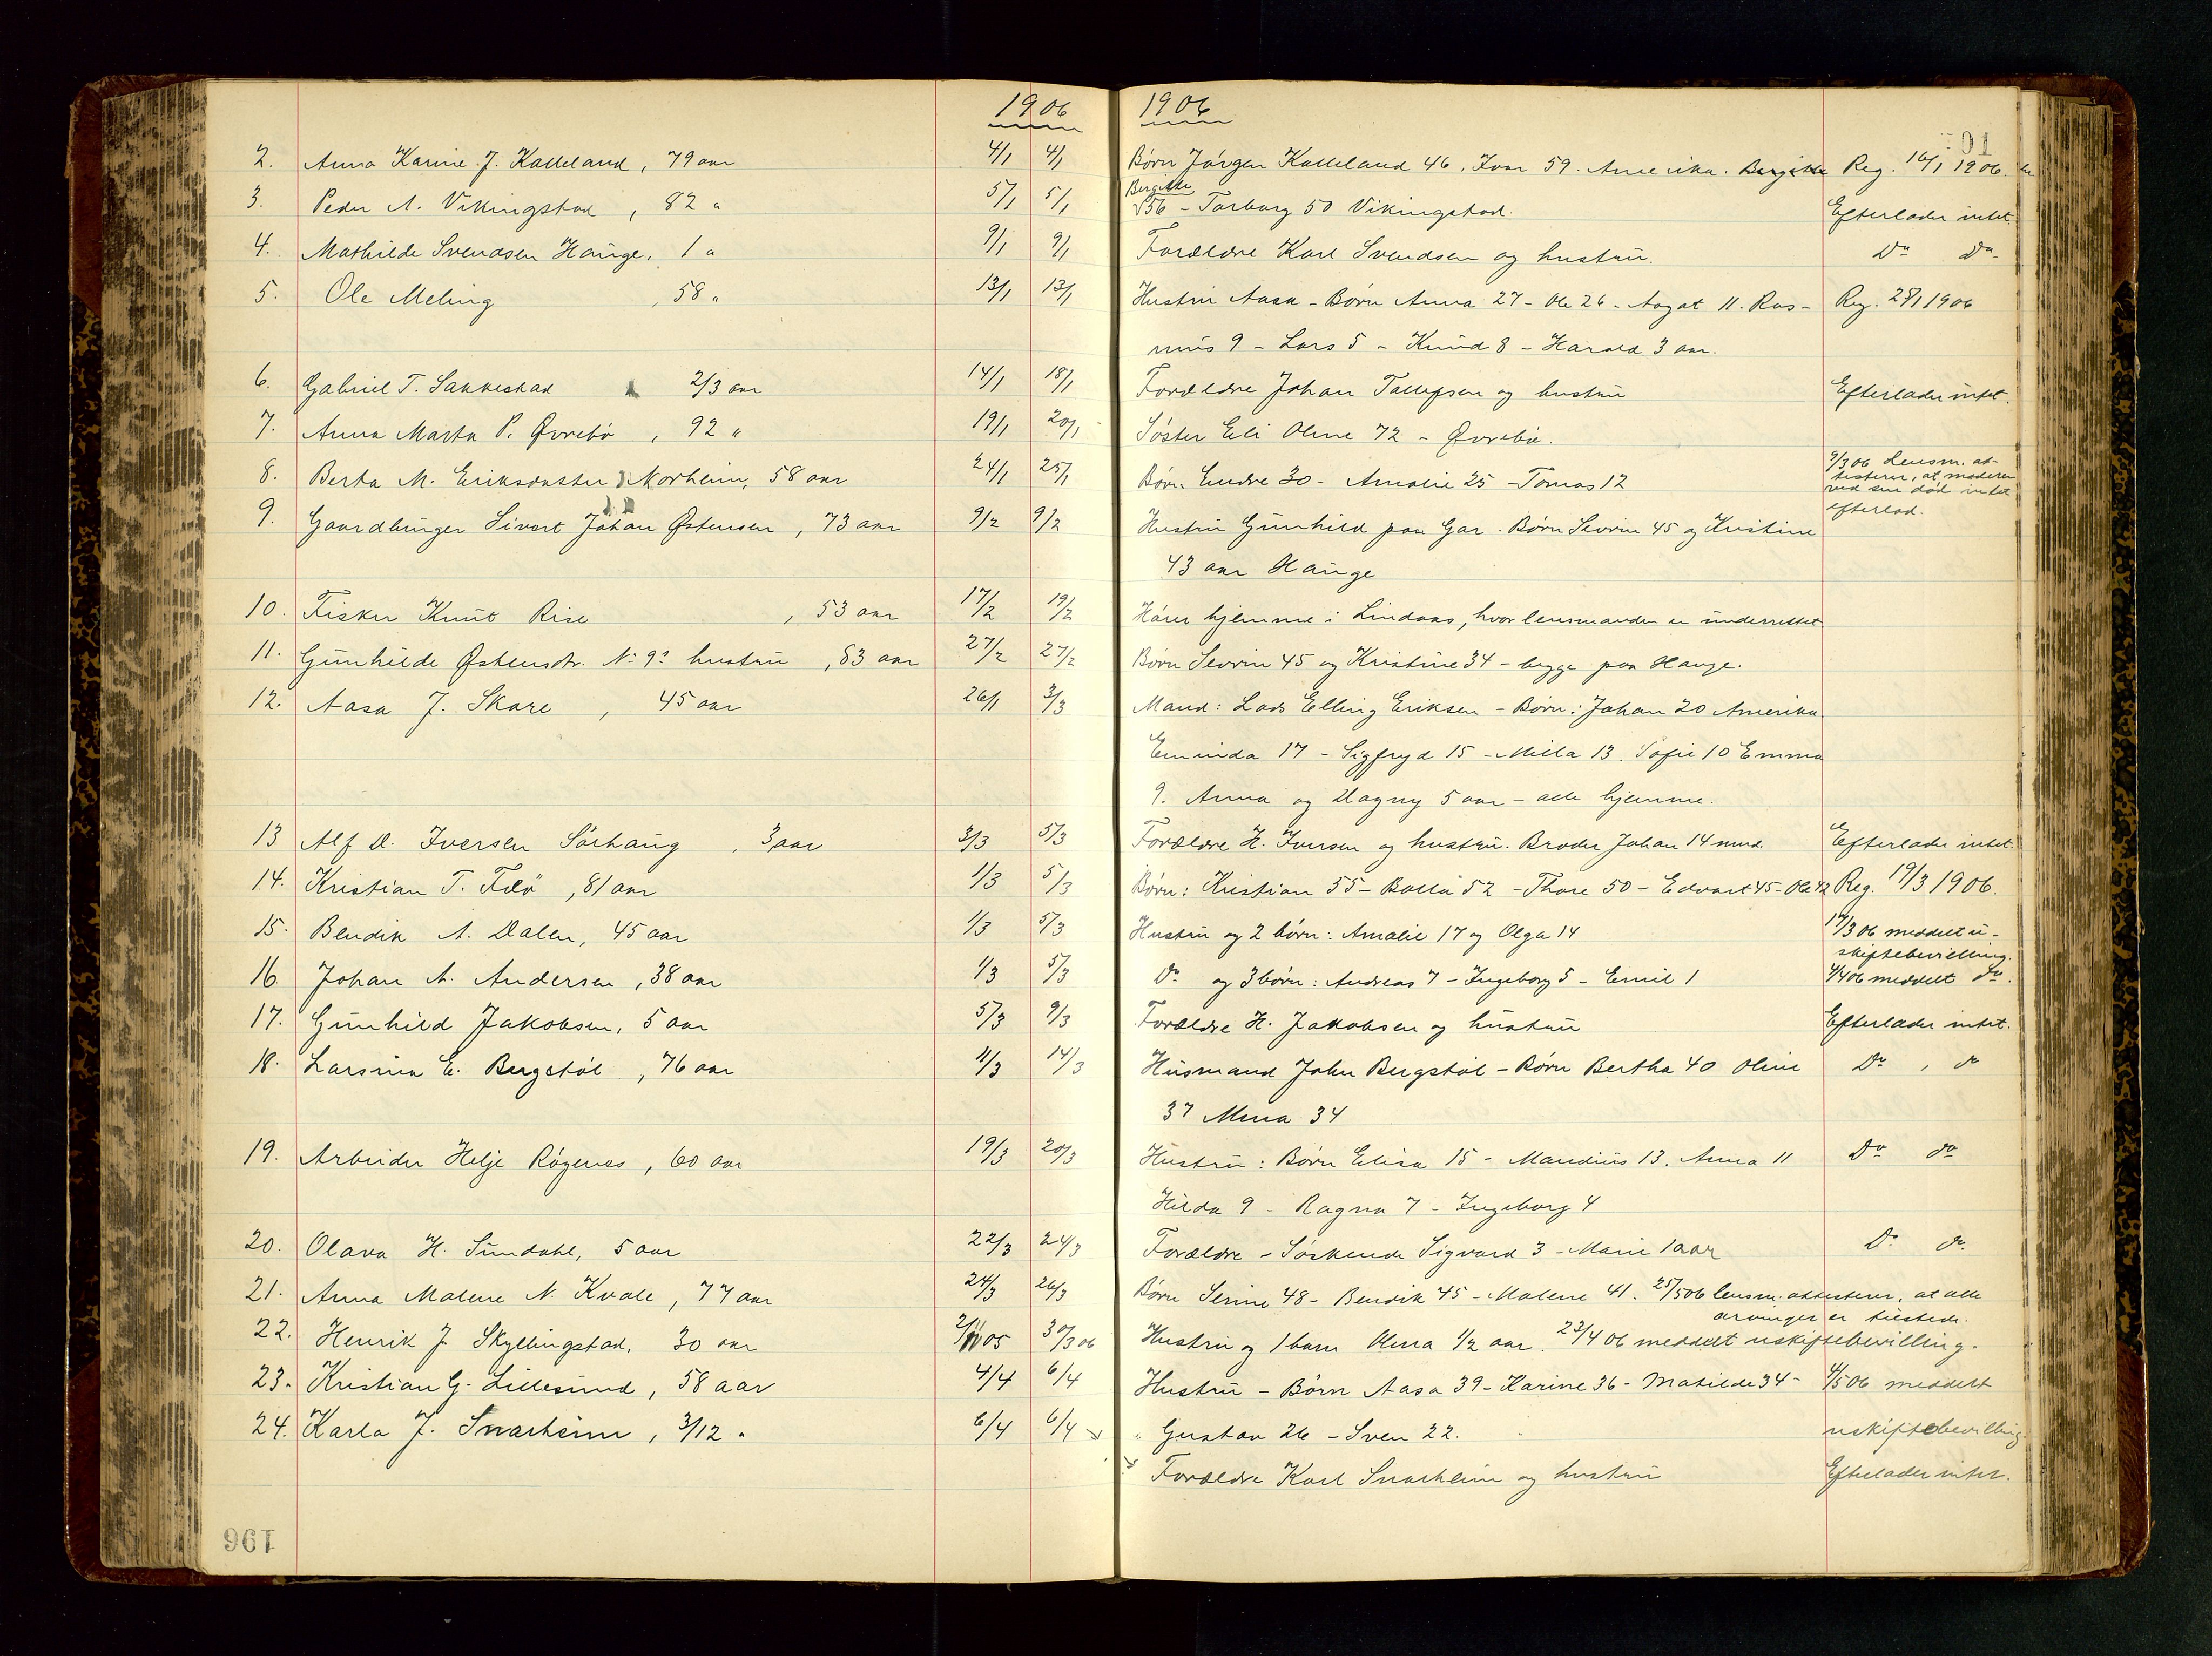 1906
2. Anna Karine J. Kalleland, 79 aar 4/1 4/1
3. Peder A. Vikingstad, 82 " 5/1 5/1
4. Mathilde Svendsen Hauge, 1 " 9/1 9/1
5. Ole Meling, 58 " 13/1 13/1
6. Gabriel T. Sakkestad 2/3 aar 14/1 18/1
7. Anna Marta P. Øvrebø, 92 " 19/1 20/1
8. Berta M. Eriksdatter Norheim, 58 aar 24/1 25/1
9. Gaardbruger Sivert Johan Østensen, 73 aar 9/2 9/2
10. Fisker Knut Rise, 53 aar 17/2 19/2
11. Gunhilde Østensdtr. No 9s hustru, 83 aar 27/2 27/2
12. Aasa J. Skare, 45 aar 26/1 3/3
13 Alf D. Iversen Sørhaug, 3 aar 3/3 5/3
14. Kristian T. Fæø, 81 aar 1/3 5/3
15. Bendik A. Dalen, 45 aar 1/3 5/3
16. Johan A. Andersen, 38 aar 1/3 5/3
17. Gunhild Jakobsen, 5 aar 5/3 9/3
18. Larsina E. Bergstøl, 76 aar 11/3 14/3
19. Arbeider Helje Røgenes, 60 aar 19/3 20/3
20. Olava H. Sundahl, 5 aar 22/3 24/3
21. Anna Malene N. Kvale, 77 aar 24/3 26/3
22. Henrik J. Skyllingstad, 30 aar 2/11 05 30/3 06
23. Kristian G. Lillesund, 58 aar 4/4 6/4
24. Karla J. Snarheim, 3/12 " 6/4 6/4
196
1906
01
Børn Jørgen Kalleland 46, Ivar 59. Amerika. Bergitte Reg. 16/1 1906.
Bergitte
56 - Torborg 50 Vikingstad. Efterlader intet.
Forældre Karl Svendsen og hustru. Do Do
Hustru Aasa - Børn Anna 27 - Ole 26 - Aagot 11. Ras- Reg. 25/1 1906
mus 9 - Lars 5 - Knud 8 - Harald 3 aar.
Forældre Johan Tollefsen og hustru Efterlader intet.
Søster Eli Oline 72 - Øvrebø.
Børn Endre 30 - Amalie 25 - Tomas 12
9/3 06 Lensm. at-
testerer, at moderen
ved sin død intet
efterlod.
Hustru Gunhild paa Gar. Børn Sevrin 45 og Kristine
43 aar Hauge
Hører hjemme i Lindaas, hvor lensmanden er underrettet.
Børn Sevrin 45 og Kristine 34 - begge paa Hauge.
Mand: Lods Elling Eriksen - Børn: Johan 20 Amerika.
Eminda 17 - Sigfryd 15 - Milla 13. Sofie 10 Emma
9. Anna og Dagny 5 aar - alle hjemme.
Forældre H. Iversen og hustru. Broder Johan 14 mnd. Efterlader intet.
Børn: Kristian 55 - Bolla 52 - Thore 50 - Edvart 45 - Ole 42 Reg. 19/3 1906.
Hustru og 2 børn: Amalie 17 og Olga 14 17/3 06 meddelt u-
skiftebevilling.
Do og 3 børn: Andreas 7 - Ingeborg 5 - Emil 1 4/4 06 meddelt do.
Forældre H. Jakobsen og hustru Efterlader intet.
Husmand John Bergstøl - Børn Bertha 40 Oline Do, do
37 Mina 34
Hustru: Børn Elisa 15 - Mandius 13. Anna 11 Do do
Hilda 9 - Ragna 7 - Ingeborg 4
Forældre - Søskende Sigvard 3 - Marie 1 aar Do do.
Børn Serine 48 - Bendik 45 - Malene 41. 25/5 06 lensm. attesterer, at alle
arvinger er tilstede.
Hustru og 1 barn Alma 1/2 aar. 23/4 06 meddelt uskiftebevilling.
Hustru - Børn Aasa 39 - Karine 36 - Matilde 34 - 4/5 06 meddelt
Gustav 26 - Sven 22. uskiftebevilling.
Forældre Karl Snarheim og hustru Efterlader intet.